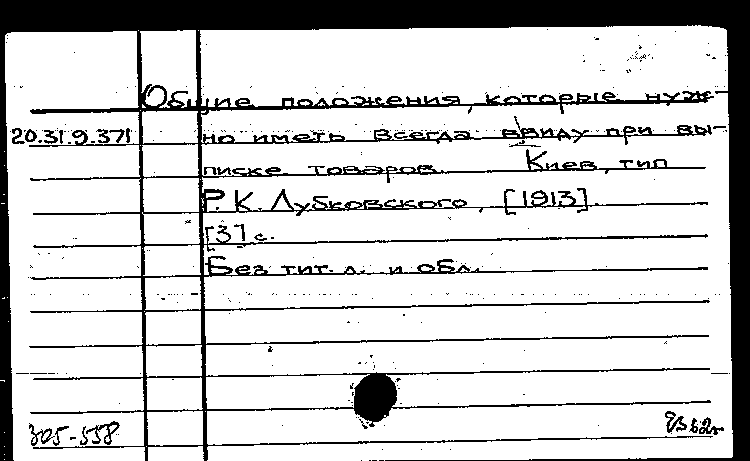 Общие положения, которые нуж-
20.31.9.371 но иметь всегда ввиду при вы-
писке товаров. Киев, тип
Р. К. Лубковского, [1913].
[3] с.
Без тит. л. и обл.
305-558